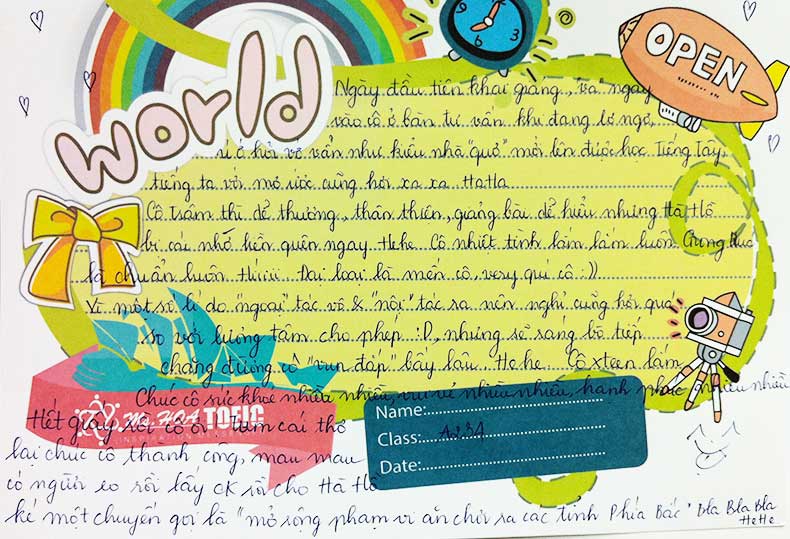 world
OPEN
6 3
Ngày đầu tiên khai giảng, va ngay
vào cô ở bàn tư vấn khi đang lơ ngơ,
ở hỏi vớ vẩn như kiểu nhà "quê" mới lên được học Tiếng Tây,
tiếng ta với mơ ước cũng hơi xa xa HaHa
Cô Trâm thì dễ thương, thân thiện, giảng bài dễ hiểu nhưng Hà Hồ
bị cái nhớ liền quên ngay Hehe Cô nhiệt tình lắm lắm luôn
là chuẩn luôn Hiiiii Đại loại là mến cô, very quí cô :))
Vì một số lí do "ngoại" tác vô & "nội" tác ra nên nghỉ cũng hơi quá
so với lương tâm cho phép :D, nhưng sẽ ráng bồ tiếp
chặng đường cô "vun đắp" bấy lâu. He he Cô xteen lắm
Chúc cô sức khoẻ nhiều nhiều, vui vẻ nhiều nhiều, hạnh phúc nhiều nhiều
Hết giấy rồi cô ơi - tụm cái thơ
lại chúc cô thành công, mau mau
có người eo rồi lấy CK rồi cho Hà Hồ
ké một chuyến gọi là "mở rộng phạm vi ăn chơi ra các tỉnh Phía Bắc" Bla Bla Bla
HeHe
Ms. HOA TOEIC
Name:
Class: A234
Date: